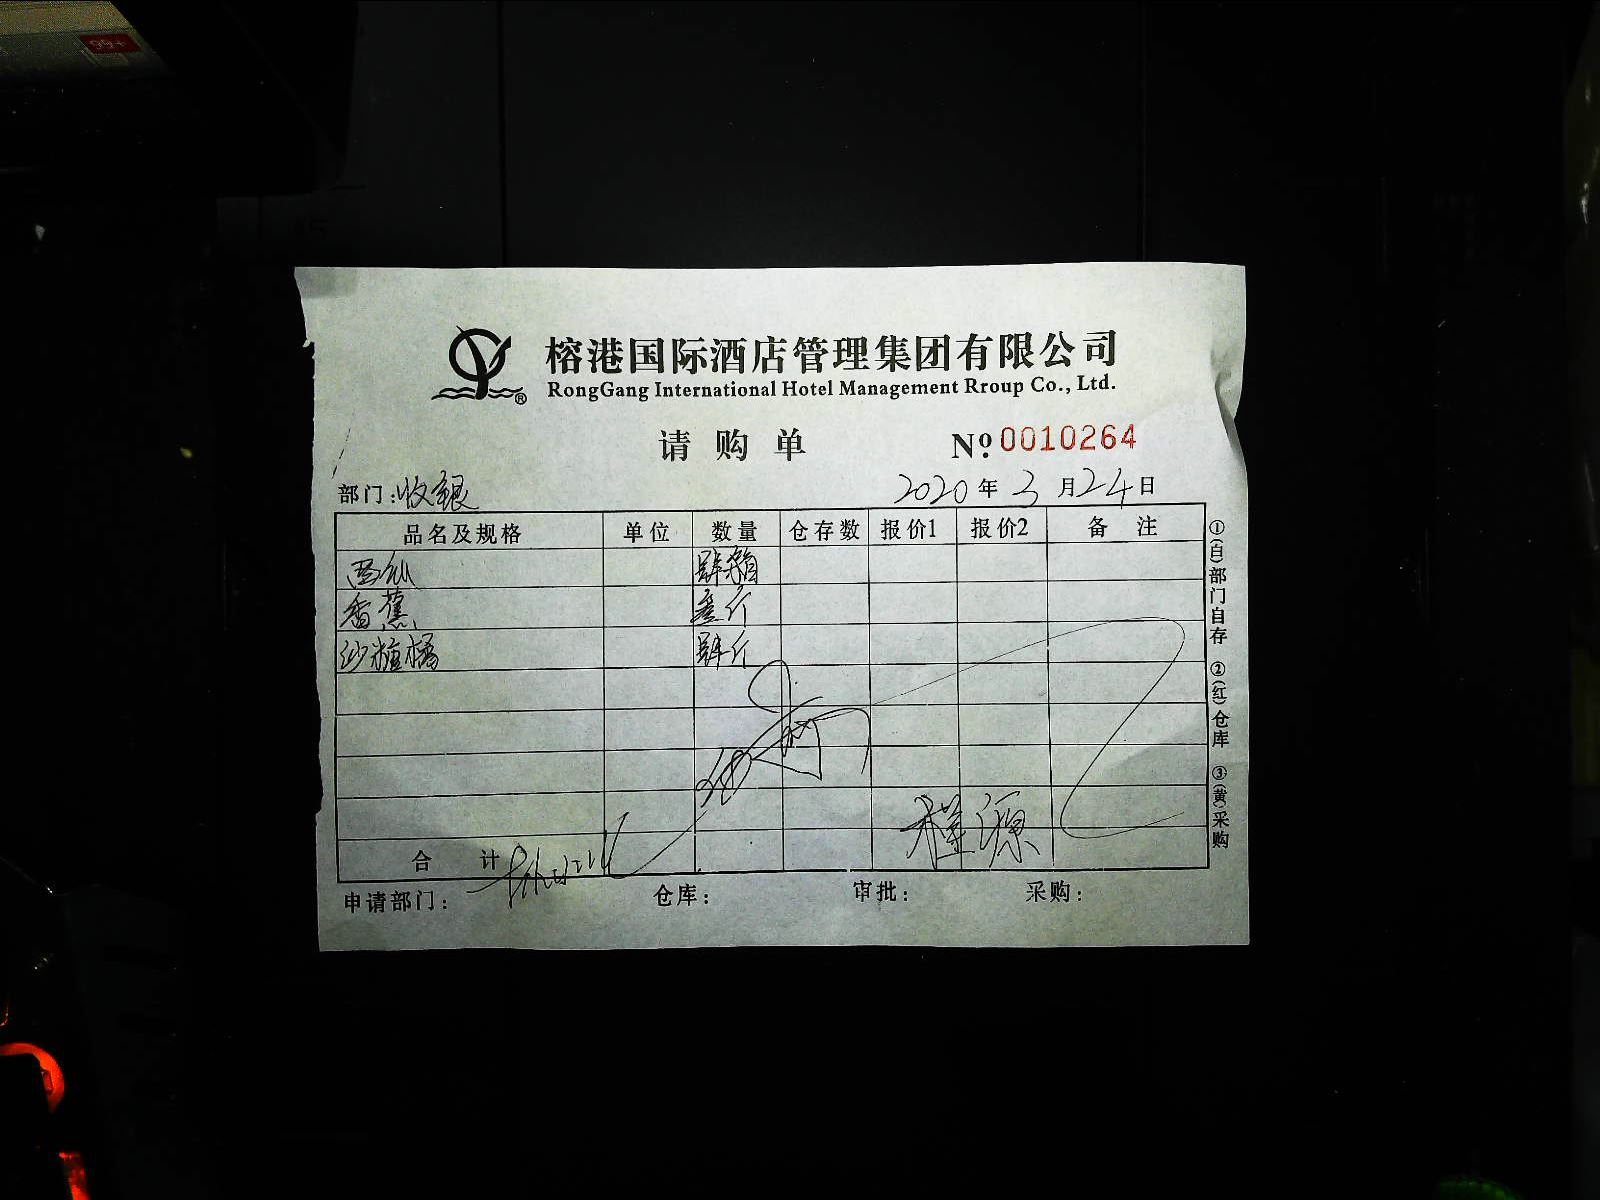 99+
榕港国际酒店管理集团有限公司
RongGang International Hotel Management Rroup Co., Ltd.
®
请购单 Nº. 0010264
部门:收银 2020年3月24日
品名及规格 单位 数量 仓存数 报价1 报价2 备注
西仙 肆箱
香蕉 叁斤
沙糖橘 肆斤
合计
申请部门: 仓库: 审批: 采购:
①(白)部门自存 ②(红)仓库 ③(黄)采购